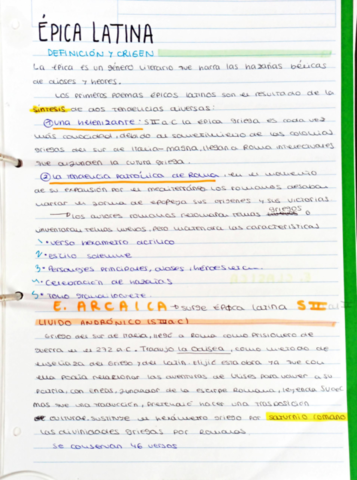 ÉPICA LATINA
DEFINICIÓN Y ORIGEN
La épica es un género literario que narra las hazañas bélicas
de dioses y héroes.
Los primeros poemas épicos latinos son el resultado de la
síntesis de dos tendencias diversas:
① una helenizante: S III a.C la épica griega es cada vez
más conocida, debido al sometimiento de las colonias
griegas del sur de Italia-magna, llegan a Roma intelectuales
que difunden la cultura griega.
② la tendencia patriótica de Roma: en el momento
de su expansión por el mediterráneo los romanos deseaban
narrar en forma de epopeya sus orígenes y sus victorias.
→ los autores romanos tomaban temas griegos o
inventaban temas nuevos, pero mantenían las características
1. verso hexámetro
2. estilo solemne
3. Personajes principales, dioses, héroes
4. Celebración de hazañas
5. Tono grandilocuente
E. ARCAICA → surge épica latina S III
LIVIO ANDRÓNICO (S III a C)
Griego del sur de Italia, llegó a Roma como prisionero de
guerra en el 272 a.C. Tradujo la Odisea como método de
enseñanza del griego y del latín. Elijió esta obra ya que con
ella podía relacionar las aventuras de Ulises para volver a su
patria, con Eneas, fundador de la estirpe Romana,
más que una traducción, pretendió hacer una trasposición
cultural, sustituye el hexámetro griego por saturnio romano
las divinidades griegas por romanas
Se conservan 46 versos